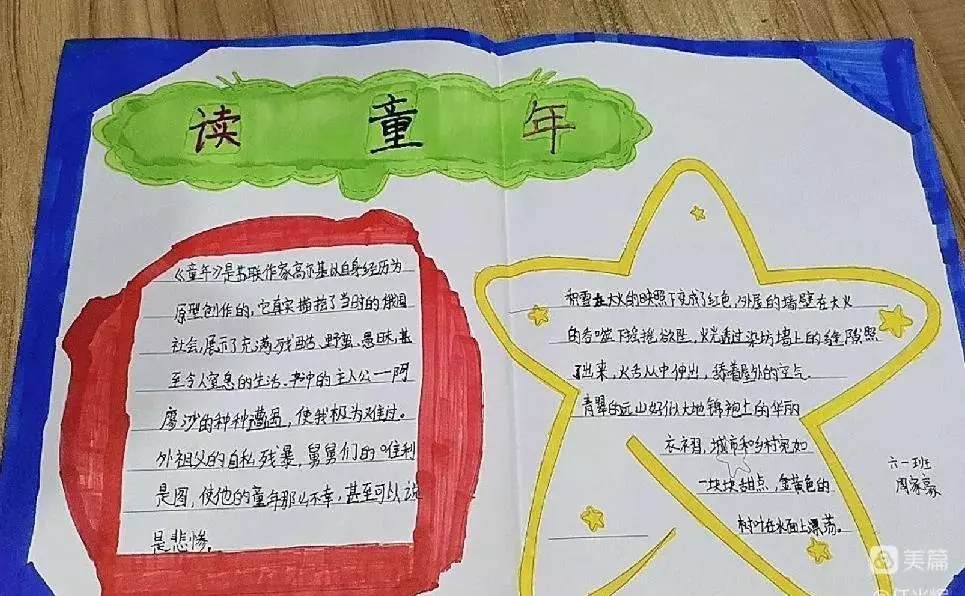 读童年
《童年》是苏联作家高尔基以自身经历为
原型创作的,它真实描控了当时的俄国
社会,展示了充满残酷、野蛮、愚昧,甚
至令人窒息的生活。书中的主人公一一阿
廖沙的种种遭遇,使我极为难过。
外祖父的自私残暴,舅舅们的唯利
是图,使他的童年那么不幸,甚至可以说
是悲惨。
积雪在大火的映照下变成了红色,外屋的墙壁在大火
的吞噬下摇摇欲坠,火光透过染坊墙上的缝隙照
出来,火舌从中伸出,舔着屋外的空气。
青翠的远山好似大地锦袍上的华丽
衣褶,城市和乡村宛如
一块块甜点,金黄色的
树叶在水面上漂荡。
六一班
周家豪
美篇